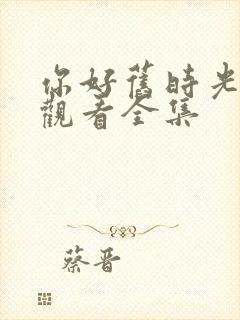 你好舊時光
觀看全集
蔡晋